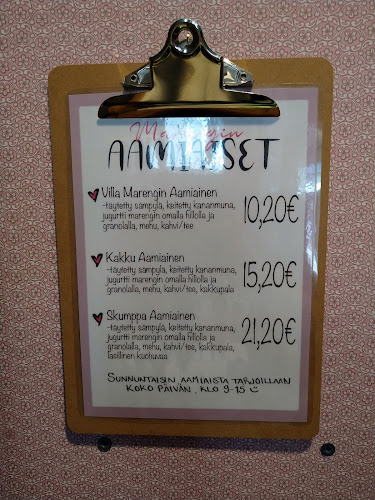 Marengin
AAMIAISET
Villa Marengin Aamiainen
-täytetty sämpylä, keitetty kananmuna,
jugurtti marengin omalla hillolla ja
granolalla, mehu, kahvi/tee
10,20€
Kakku Aamiainen
-täytetty sämpylä, keitetty kananmuna,
jugurtti marengin omalla hillolla ja
granolalla, mehu, kahvi/tee, kakkupala
15,20€
Skumppa Aamiainen
-täytetty sämpylä, keitetty kananmuna,
jugurtti marengin omalla hillolla ja
granolalla, mehu, kahvi/tee, kakkupala,
lasillinen kuohuvaa
21,20€
SUNNUNTAISIN AAMIAISTA TARJOILLAAN
KOKO PÄIVÄN, KLO 9-15